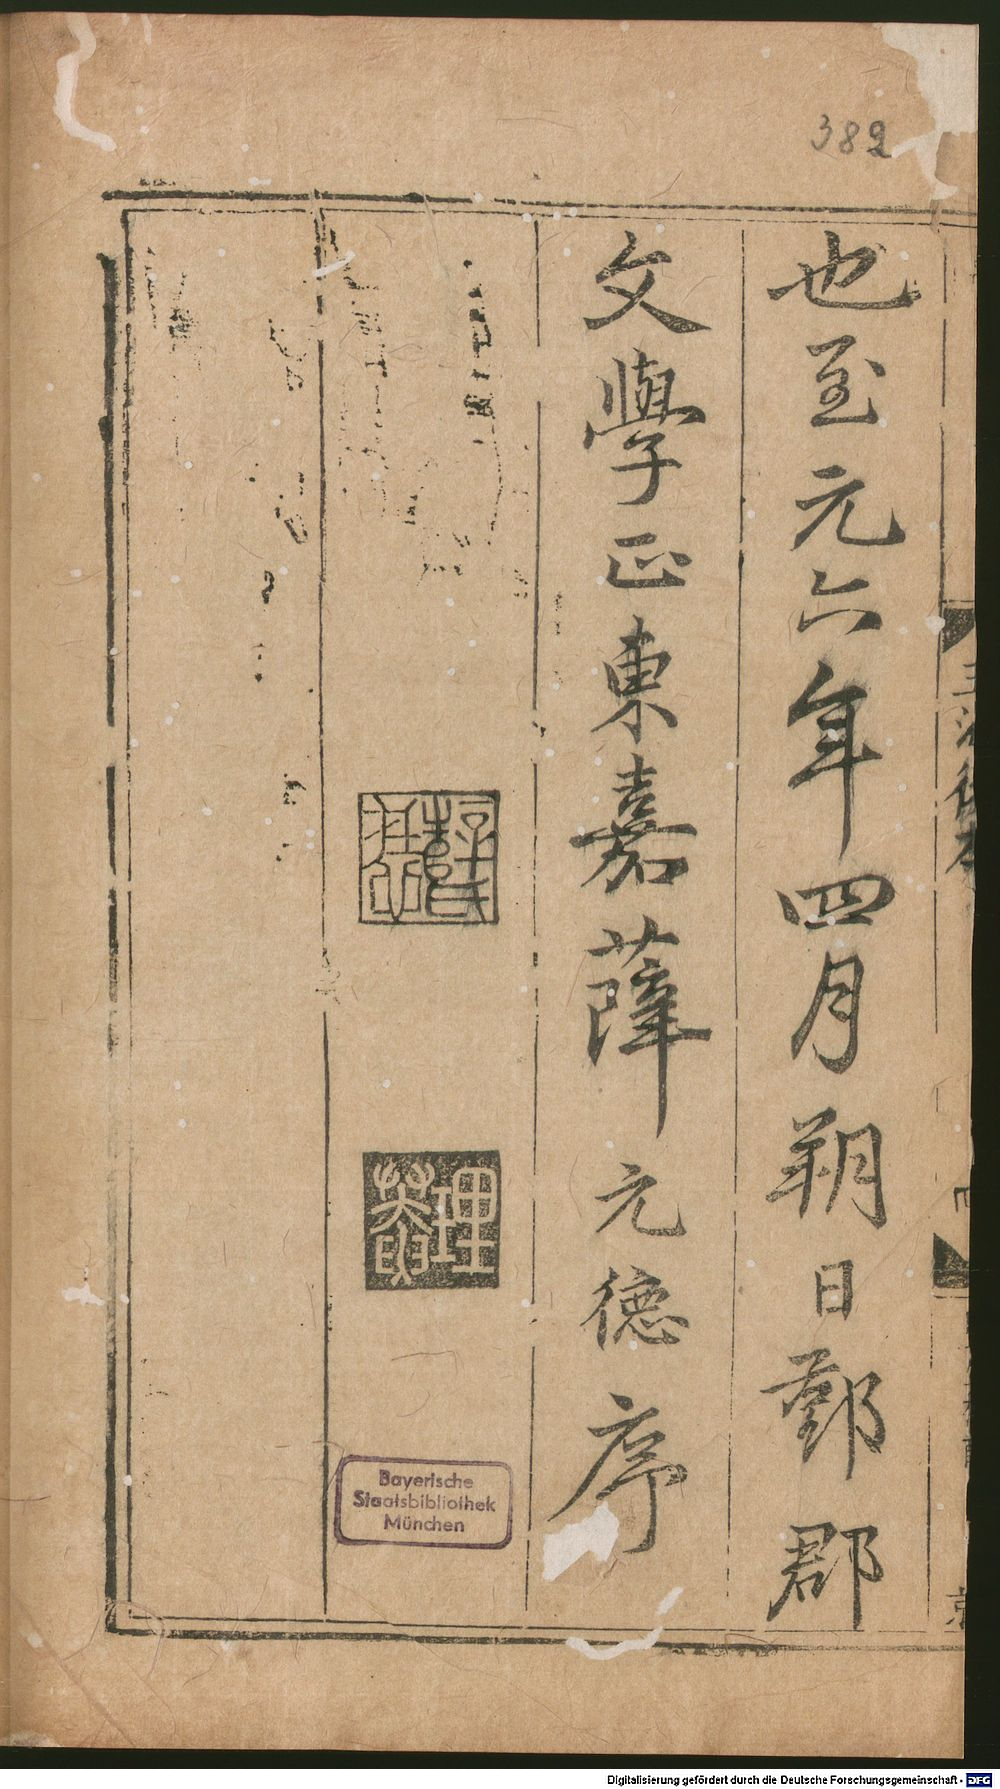 382
也至元六年四月朔日鄞郡
文學正東嘉薛元德序
理
Bayerische
Staatsbibliothek
München
Digitalisierung gefördert durch die Deutsche Forschungsgemeinschaft - DFG